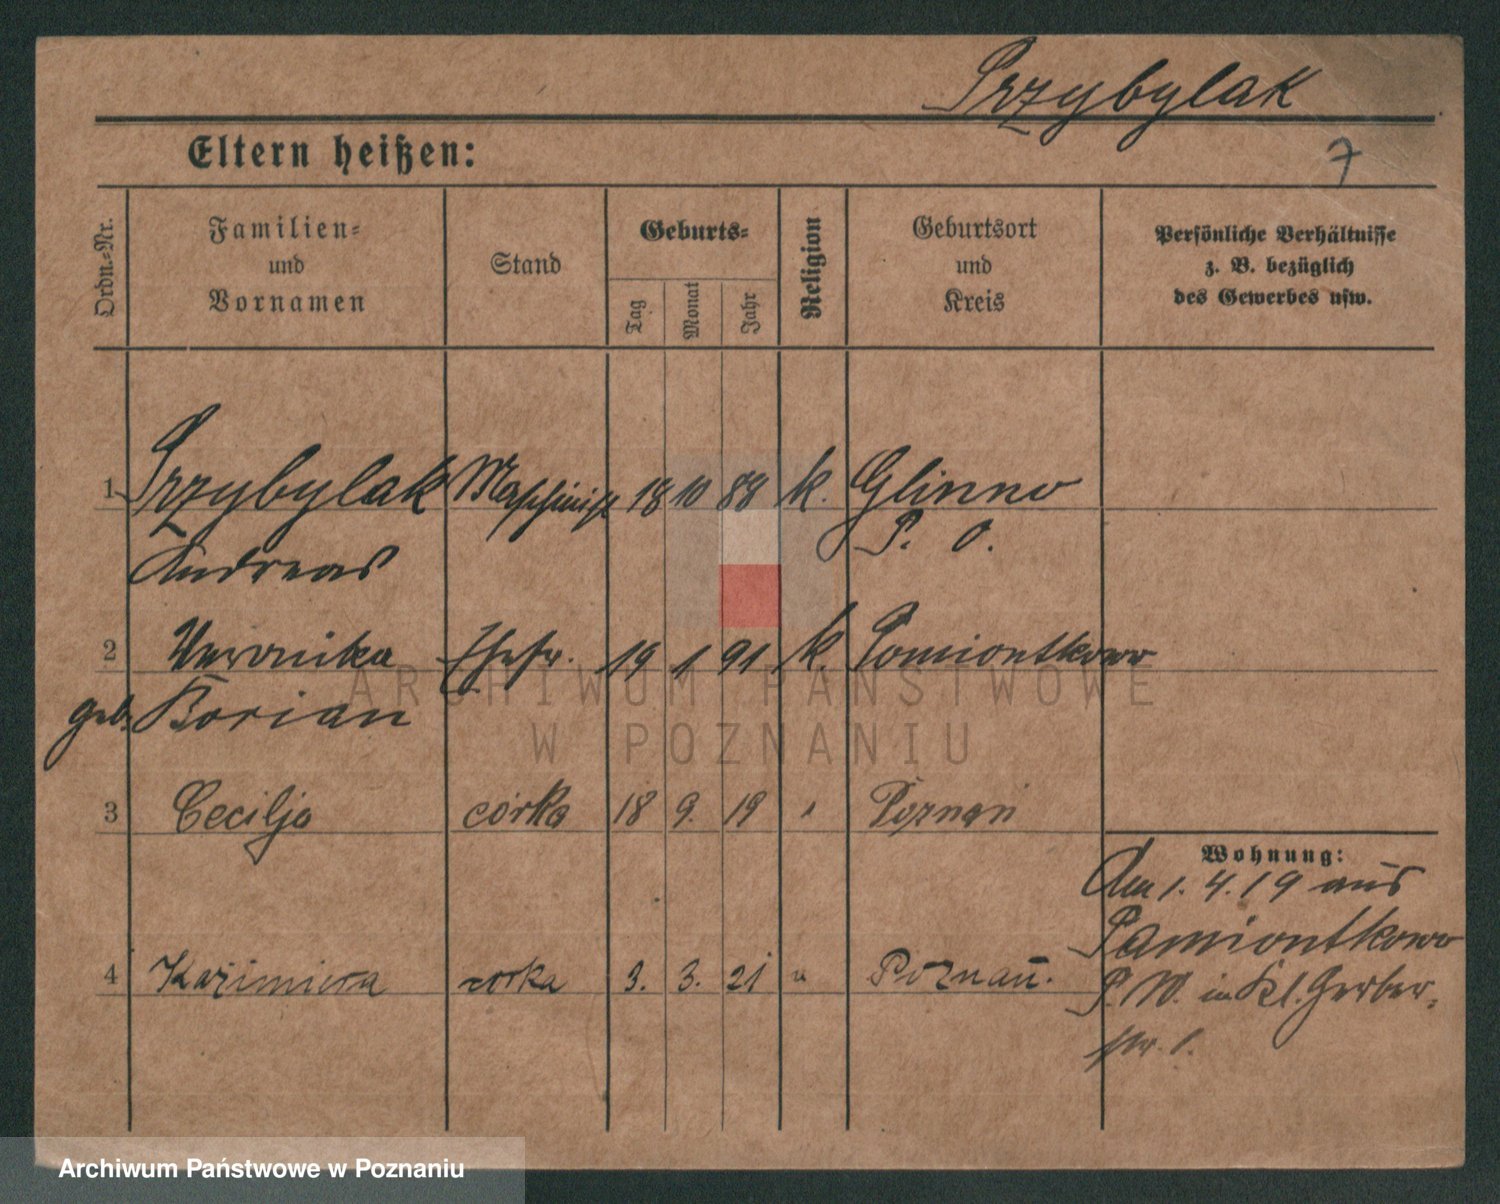 Przybylak
Eltern heißen:
7
Ordn.-Nr.
Familien-
und
Vornamen
Stand
Geburts-
Tag
Monat
Jahr
Religion
Geburtsort
und
Kreis
Persönliche Verhältnisse
z. B. bezüglich
des Gewerbes usw.
1 Przybylak Maschinist 18 10 88 k. Glinno
Andreas P. O.
2 Veronika Ehefr. 19 1 91 k. Pamiontkowo
geb. Borian
3 Cecilja córka 18 9. 19 Poznań
4 Kazimiera corka 3. 3. 21 " Poznań.
Wohnung:
Am 1. 4. 19 aus
Pamiontkowo
P. W. in Kl. Gerber-
str. 1.
ARCHIWUM PAŃSTWOWE
W POZNANIU
Archiwum Państwowe w Poznaniu